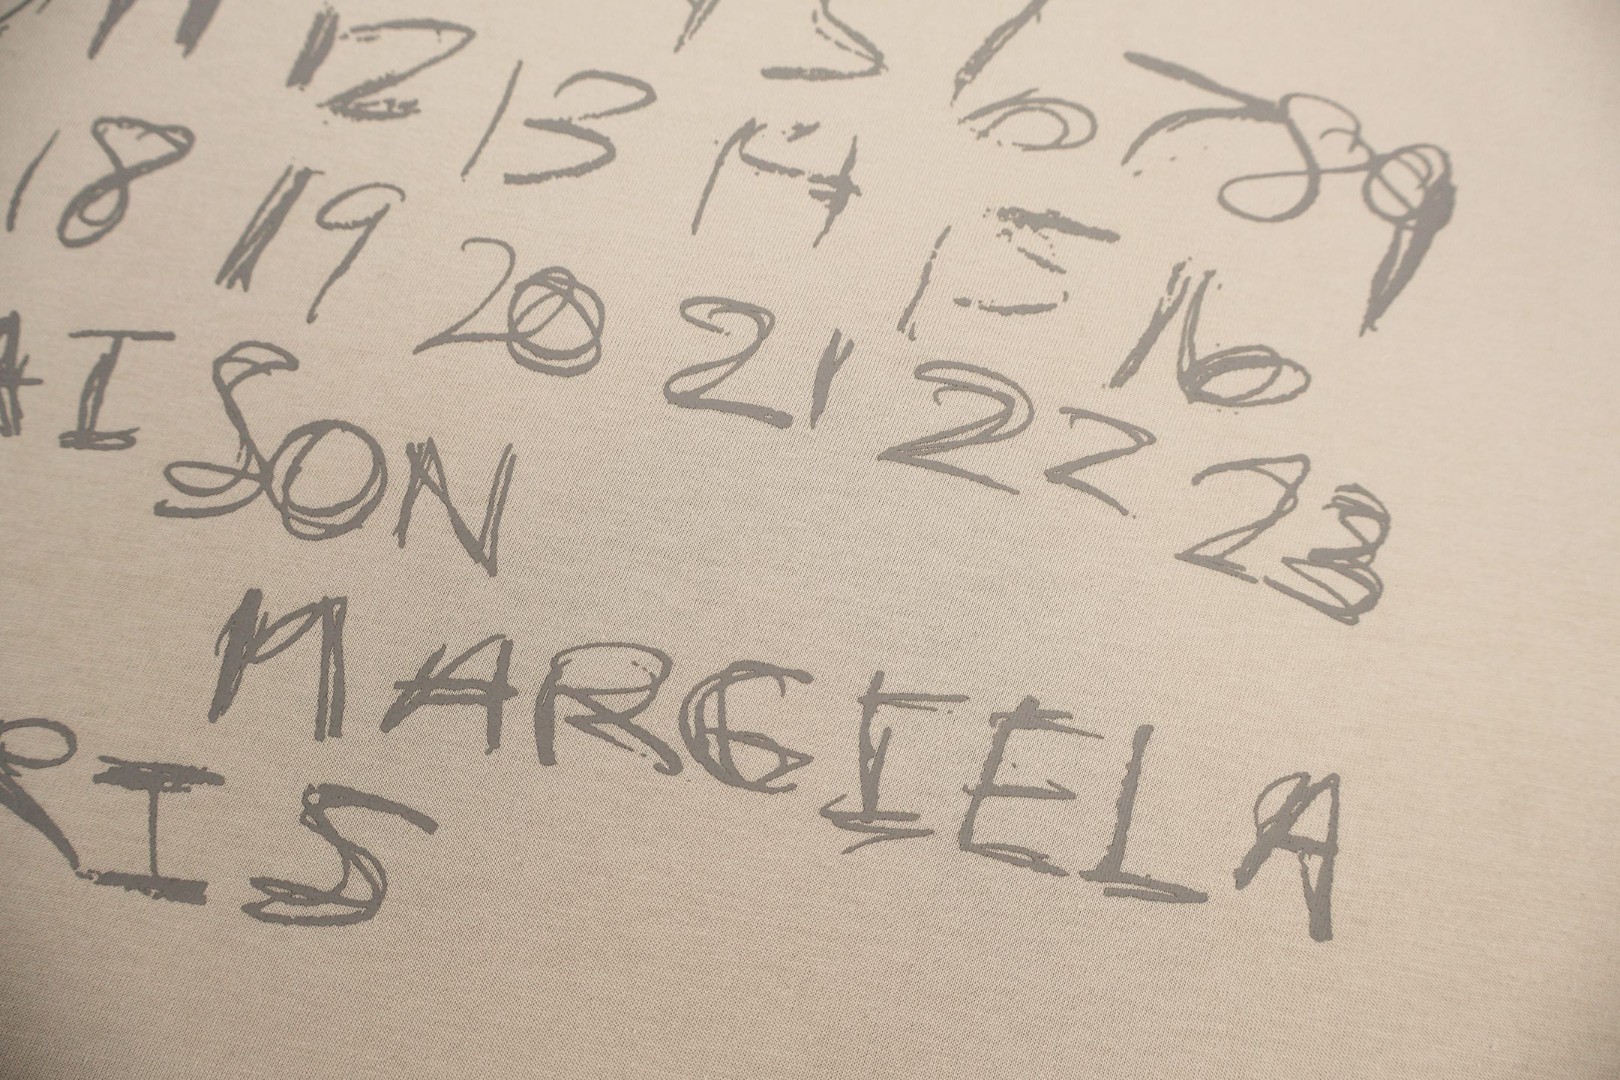 4 5 6 7 8 9
11 12 13 14 15 16
18 19 20 21 22 23
AISON
MARGIELA
RIS